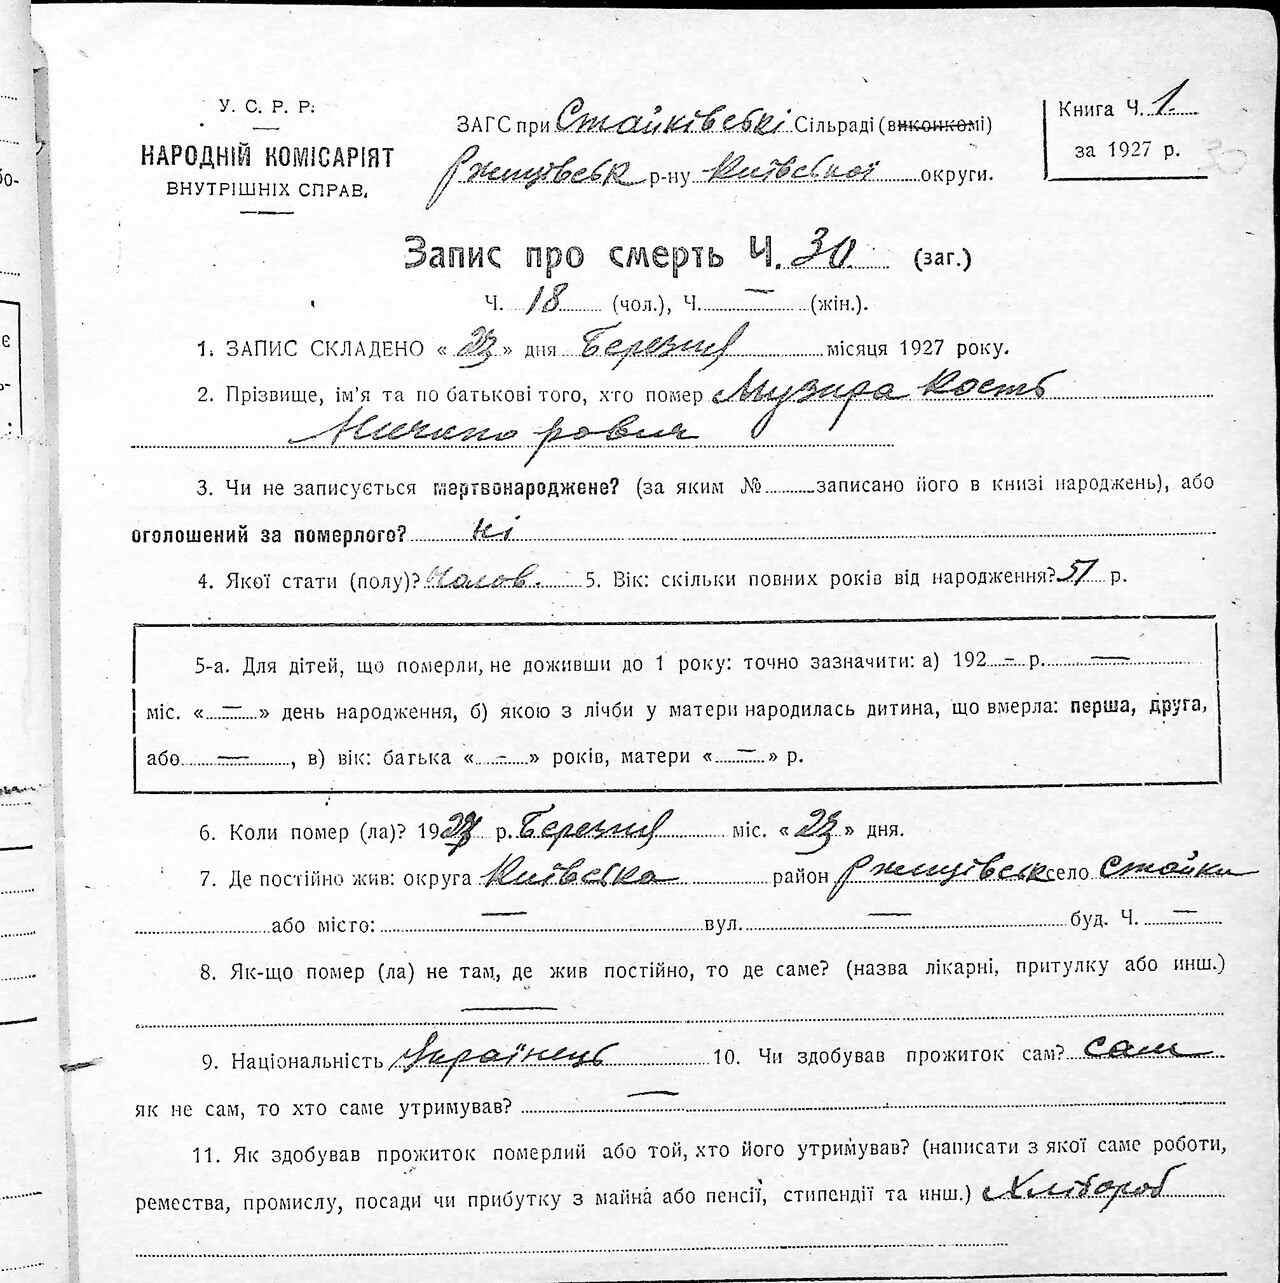 У. С. Р. Р.
НАРОДНІЙ КОМІСАРІЯТ
ВНУТРІШНІХ СПРАВ.
ЗАГС при Стайківські Сільраді (виконкомі)
Ржищівськ р-ну Київської округи.
Книга Ч. 1.
за 1927 р.
30
Запис про смерть Ч. 30. (заг.)
Ч. 18 (чол.), Ч. — (жін.).
1. ЗАПИС СКЛАДЕНО « 23 » дня Березня місяця 1927 року.
2. Прізвище, ім'я та по батькові того, хто помер Музира Кость
Ничипорович
3. Чи не записується мертвонароджене? (за яким № записано його в книзі народжень), або
оголошений за померлого? ні
4. Якої стати (полу)? Чолов. 5. Вік: скільки повних років від народження? 51 р.
5-а. Для дітей, що померли, не доживши до 1 року: точно зазначити: а) 192 — р. —
міс. « — » день народження, б) якою з лічби у матери народилась дитина, що вмерла: перша, друга,
або — , в) вік: батька « - » років, матери « — » р.
6. Коли помер (ла)? 1927 р. Березня міс. « 23 » дня.
7. Де постійно жив: округа Київська район Ржищівськ село Стайки
або місто: — вул. — буд. Ч. —
8. Як-що помер (ла) не там, де жив постійно, то де саме? (назва лікарні, притулку або инш.)
—
9. Національність Українець 10. Чи здобував прожиток сам? сам
як не сам, то хто саме утримував? —
11. Як здобував прожиток померлий або той, хто його утримував? (написати з якої саме роботи,
ремества, промислу, посади чи прибутку з майна або пенсії, стипендії та инш.) Хлібороб